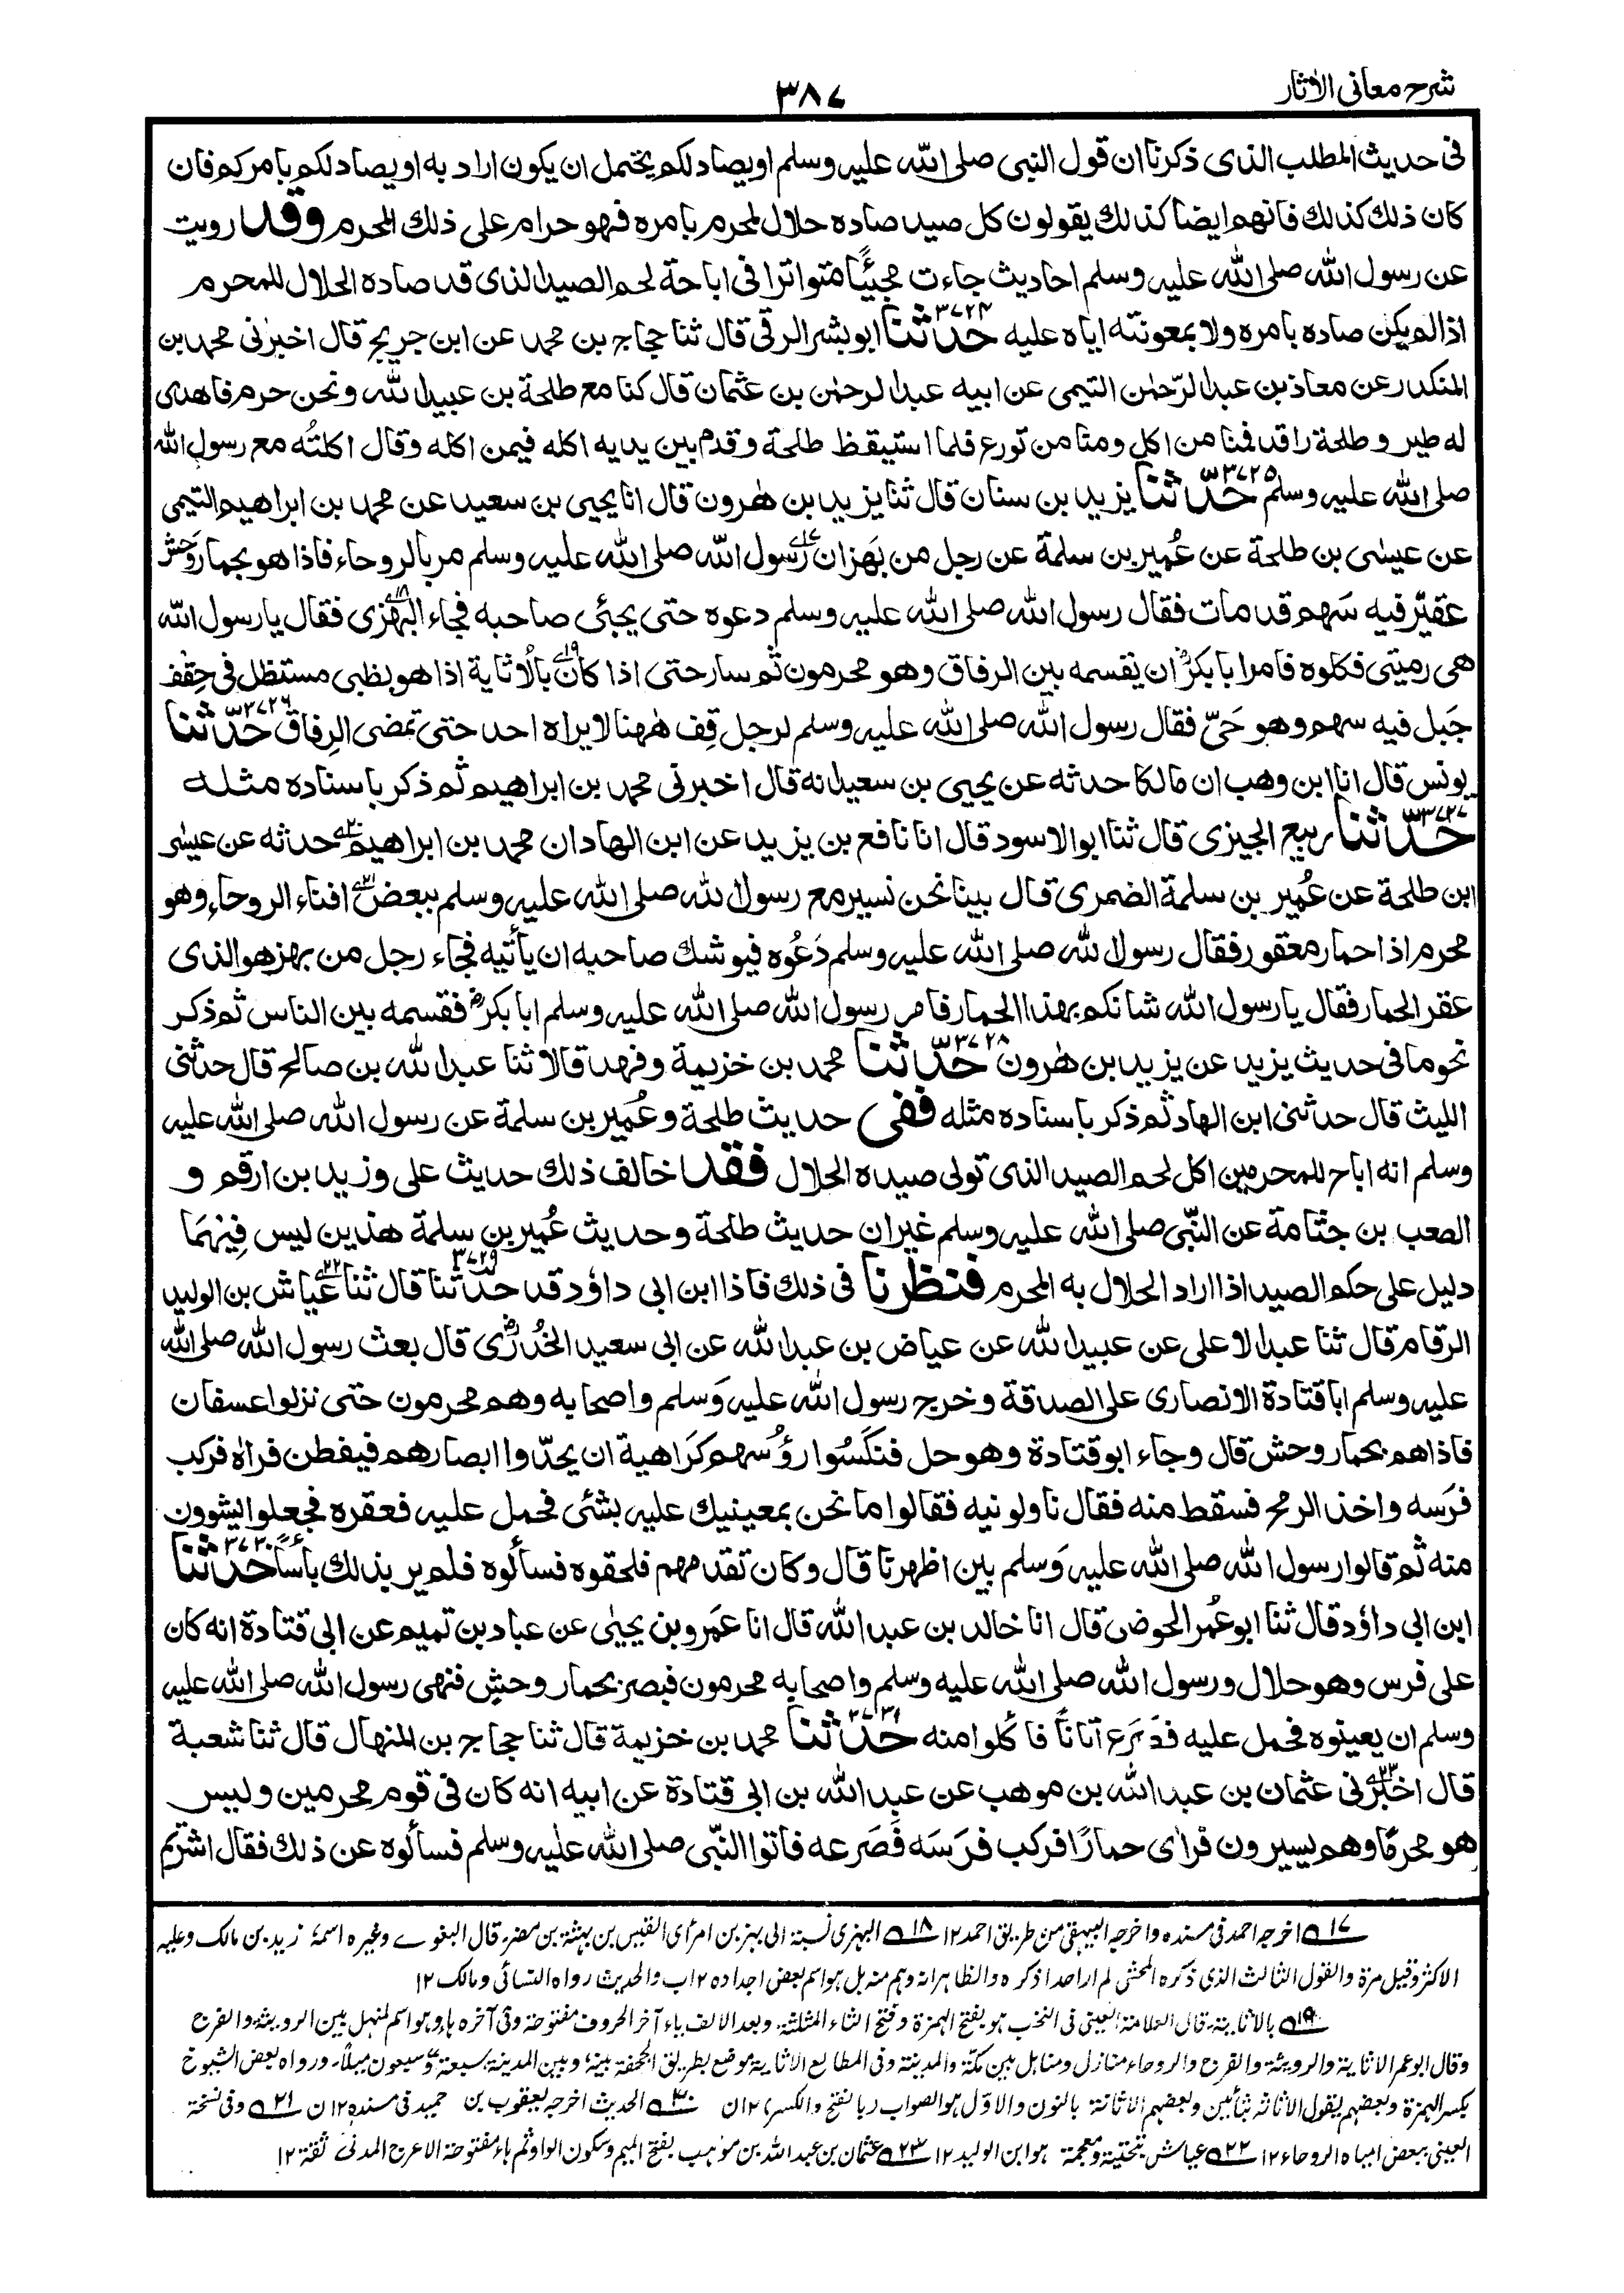 شرح معانی الاٰثار
۳۸۷
فی حدیث المطلب الذی ذکرنا ان قول النبی صلی اللہ علیہ وسلم او یصاد لکم یحتمل ان یکون اراد به او یصاد لکم بامرکم فان
کان ذلك کذلك فانهم ایضا کذلك یقولون کل صید صاده حلال لمحرم بامره فهو حرام علی ذلك المحرم وقد رویت
عن رسول الله صلی الله علیه وسلم احادیث جاءت مجیئًا متواترا فی اباحة لحم الصید الذی قد صاده الحلال للمحرم
اذا لم یکن صاده بامره ولا بمعونته ایاه علیه ۳۷۲۴ حدثنا ابو بشر الرقی قال ثنا حجاج بن محمد عن ابن جریج قال اخبرنی محمد بن
المنکدر عن معاذ بن عبد الرّحمٰن التیمی عن ابیه عبد الرحمٰن بن عثمان قال کنا مع طلحة بن عبید الله ونحن حرم فاهدی
له طیر وطلحة راقد فمنا من اکل ومنا من تورع فلما استیقظ طلحة وقدم بین یدیه اکله فیمن اکله وقال اکلتُه مع رسول الله
صلی الله علیه وسلم ۳۷۲۵ حدّثنا یزید بن سنان قال ثنا یزید بن هٰرون قال انا یحیی بن سعید عن محمد بن ابراهیم التیمی
عن عیسٰی بن طلحة عن عُمیر بن سلمة عن رجل من بَهز ان ۱۷ رسول الله صلی الله علیه وسلم مر بالروحاء فاذا هو بحمار وَحش
عقیرٌ فیه سَهم قد مات فقال رسول الله صلی الله علیه وسلم دعوه حتی یجئی صاحبه فجاء البهزی ۱۸ فقال یا رسول الله
هی رمیتی فکلوه فامر ابا بکرؓ ان یقسمه بین الرفاق وهو محرمون ثم سار حتی اذا کان ۱۹ بالاُثایة اذا هو بظبی مستظل فی حِقف
جَبل فیه سهم وهو حَیّ فقال رسول الله صلی الله علیه وسلم لرجل قِف هٰهنا لا یراه احد حتی تمضی الرِفاق ۳۷۲۶ حدّثنا
یونس قال انا ابن وهب ان مالکا حدثه عن یحیی بن سعید انه قال اخبرنی محمد بن ابراهیم ثم ذکر باسناده مثله
۳۷۲۷ حدّثنا ربیع الجیزی قال ثنا ابو الاسود قال انا نافع بن یزید عن ابن الهاد ان محمد بن ابراهیم ۲۰ حدثه عن عیسٰی
ابن طلحة عن عُمیر بن سلمة الضمری قال بینا نحن نسیر مع رسول الله صلی الله علیه وسلم ببعض ۲۱ افناء الروحاء وهو
محرم اذا حمار معقور فقال رسول الله صلی الله علیه وسلم دَعُوه فیوشك صاحبه ان یأتیه فجاء رجل من بهز هو الذی
عقر الحمار فقال یا رسول الله شانکم بهذا الحمار فامر رسول الله صلی الله علیه وسلم ابا بکرؓ فقسمه بین الناس ثم ذکر
نحو ما فی حدیث یزید عن یزید بن هٰرون ۳۷۲۸ حدّثنا محمد بن خزیمة وفهد قالا ثنا عبد الله بن صالح قال حدثنی
اللیث قال حدثنی ابن الهاد ثم ذکر باسناده مثله ففی حدیث طلحة وعُمیر بن سلمة عن رسول الله صلی الله علیه
وسلم انه اباح للمحرمین اکل لحم الصید الذی تولی صیده الحلال فقد خالف ذلك حدیث علی وزید بن ارقم و
الصعب بن جثامة عن النّبی صلی الله علیه وسلم غیر ان حدیث طلحة وحدیث عُمیر بن سلمة هذین لیس فِیْهِمَا
دلیل علی حکم الصید اذا اراد الحلال به المحرم فنظرنا فی ذلك فاذا ابن ابی داؤد قد ۳۷۲۹ حدثنا قال ثنا ۲۲ عیاش بن الولید
الرقام قال ثنا عبد الاعلی عن عبید الله عن عیاض بن عبد الله عن ابی سعید الخُدریؓ قال بعث رسول الله صلی الله
علیه وسلم ابا قتادة الانصاری علی الصدقة وخرج رسول الله علیه وَسلم واصحابه وهم محرمون حتی نزلوا عسفان
فاذا هم بحمار وحش قال وجاء ابو قتادة وهو حل فنکَسُوا رؤُسهم کَرَاهیة ان یحدّوا ابصارهم فیفطن فراٰه فرکب
فرَسه واخذ الرمح فسقط منه فقال ناولونیه فقالوا ما نحن بمعینیك علیه بشئی فحمل علیه فعقره فجعلوا یشوون
منه ثم قالوا رسول الله صلی الله علیه وَسلم بین اظهرنا قال وکان تقدمهم فلحقوه فسألوه فلم یر بذلك بأسًا ۳۷۳۰ حدثنا
ابن ابی داؤد قال ثنا ابو عُمر الحوضی قال انا خالد بن عبد الله قال انا عَمرو بن یحیٰی عن عباد بن تمیم عن ابی قتادة انه کان
علی فرس وهو حلال ورسول الله صلی الله علیه وسلم واصحابه محرمون فبصر بحمار وحشٍ فنهی رسول الله صلی الله علیه
وسلم ان یعینوه فحمل علیه فصَرَع اَتاناً فاکلوا منه ۳۷۳۱ حدّثنا محمد بن خزیمة قال ثنا حجاج بن المنهال قال ثنا شعبة
قال اخبرنی ۲۳ عثمان بن عبد الله بن موهب عن عبد الله بن ابی قتادة عن ابیه انه کان فی قوم محرمین ولیس
هو محرمًا وهم یسیرون فرأی حمارًا فرکب فرَسَه فَصَرعه فاتوا النّبی صلی الله علیه وسلم فسألوه عن ذلك فقال اشترکتم
۱۷ اخرجہ احمد فی مسندہ واخرجہ البیہقی من طریق احمد ۱۲ ۱۸ البہزی نسبة الی بہز بن امرأی القیس بن بہثة بن مضر قال البغوے وغیرہ اسمہ زید بن مالک وعلیہ
الاکثر وقیل مرة والقول الثالث الذی ذکرہ المحشی لم ار احدا ذکرہ والظاہر انہ وہم منہ بل ہو اسم بعض اجدادہ ۱۲ب والحدیث رواہ النسائی ومالک ۱۲
۱۹ بالاثایة۔ قال العلامة العینی فی النخب ہو بفتح الہمزة وفتح الثاء المثلثة وبعد الالف یاء آخر الحروف مفتوحة وفی آخرہ ہاء وہو اسم لمنہل بین الرویثة والفرح
وقال ابو عمر الاثایة والرویثة والفرح والروحاء منازل ومناہل بین مکة والمدینة وفی المطالع الاثایة موضع بطریق الجحفة بینہ وبین المدینة سبعة وسبعون میلاً۔ ورواہ بعض الشیوخ
بکسر الہمزة وبعضہم یقول الاثاثہ بثائین وبعضہم الاثانة بالنون والاول ہو الصواب ۱۲ن ۲۰ الحدیث اخرجہ یعقوب بن حمید فی مسندہ ۱۲ن ۲۱ وفی نسخة
العینی ببعض امیاہ الروحاء ۱۲ ۲۲ عیاش بتحتیة ومعجمة ہو ابن الولید ۱۲ ۲۳ عثمان بن عبد اللہ بن موہب بفتح المیم وسکون الواو ثم ہاء مفتوحة الاعرج المدنی ثقة ۱۲